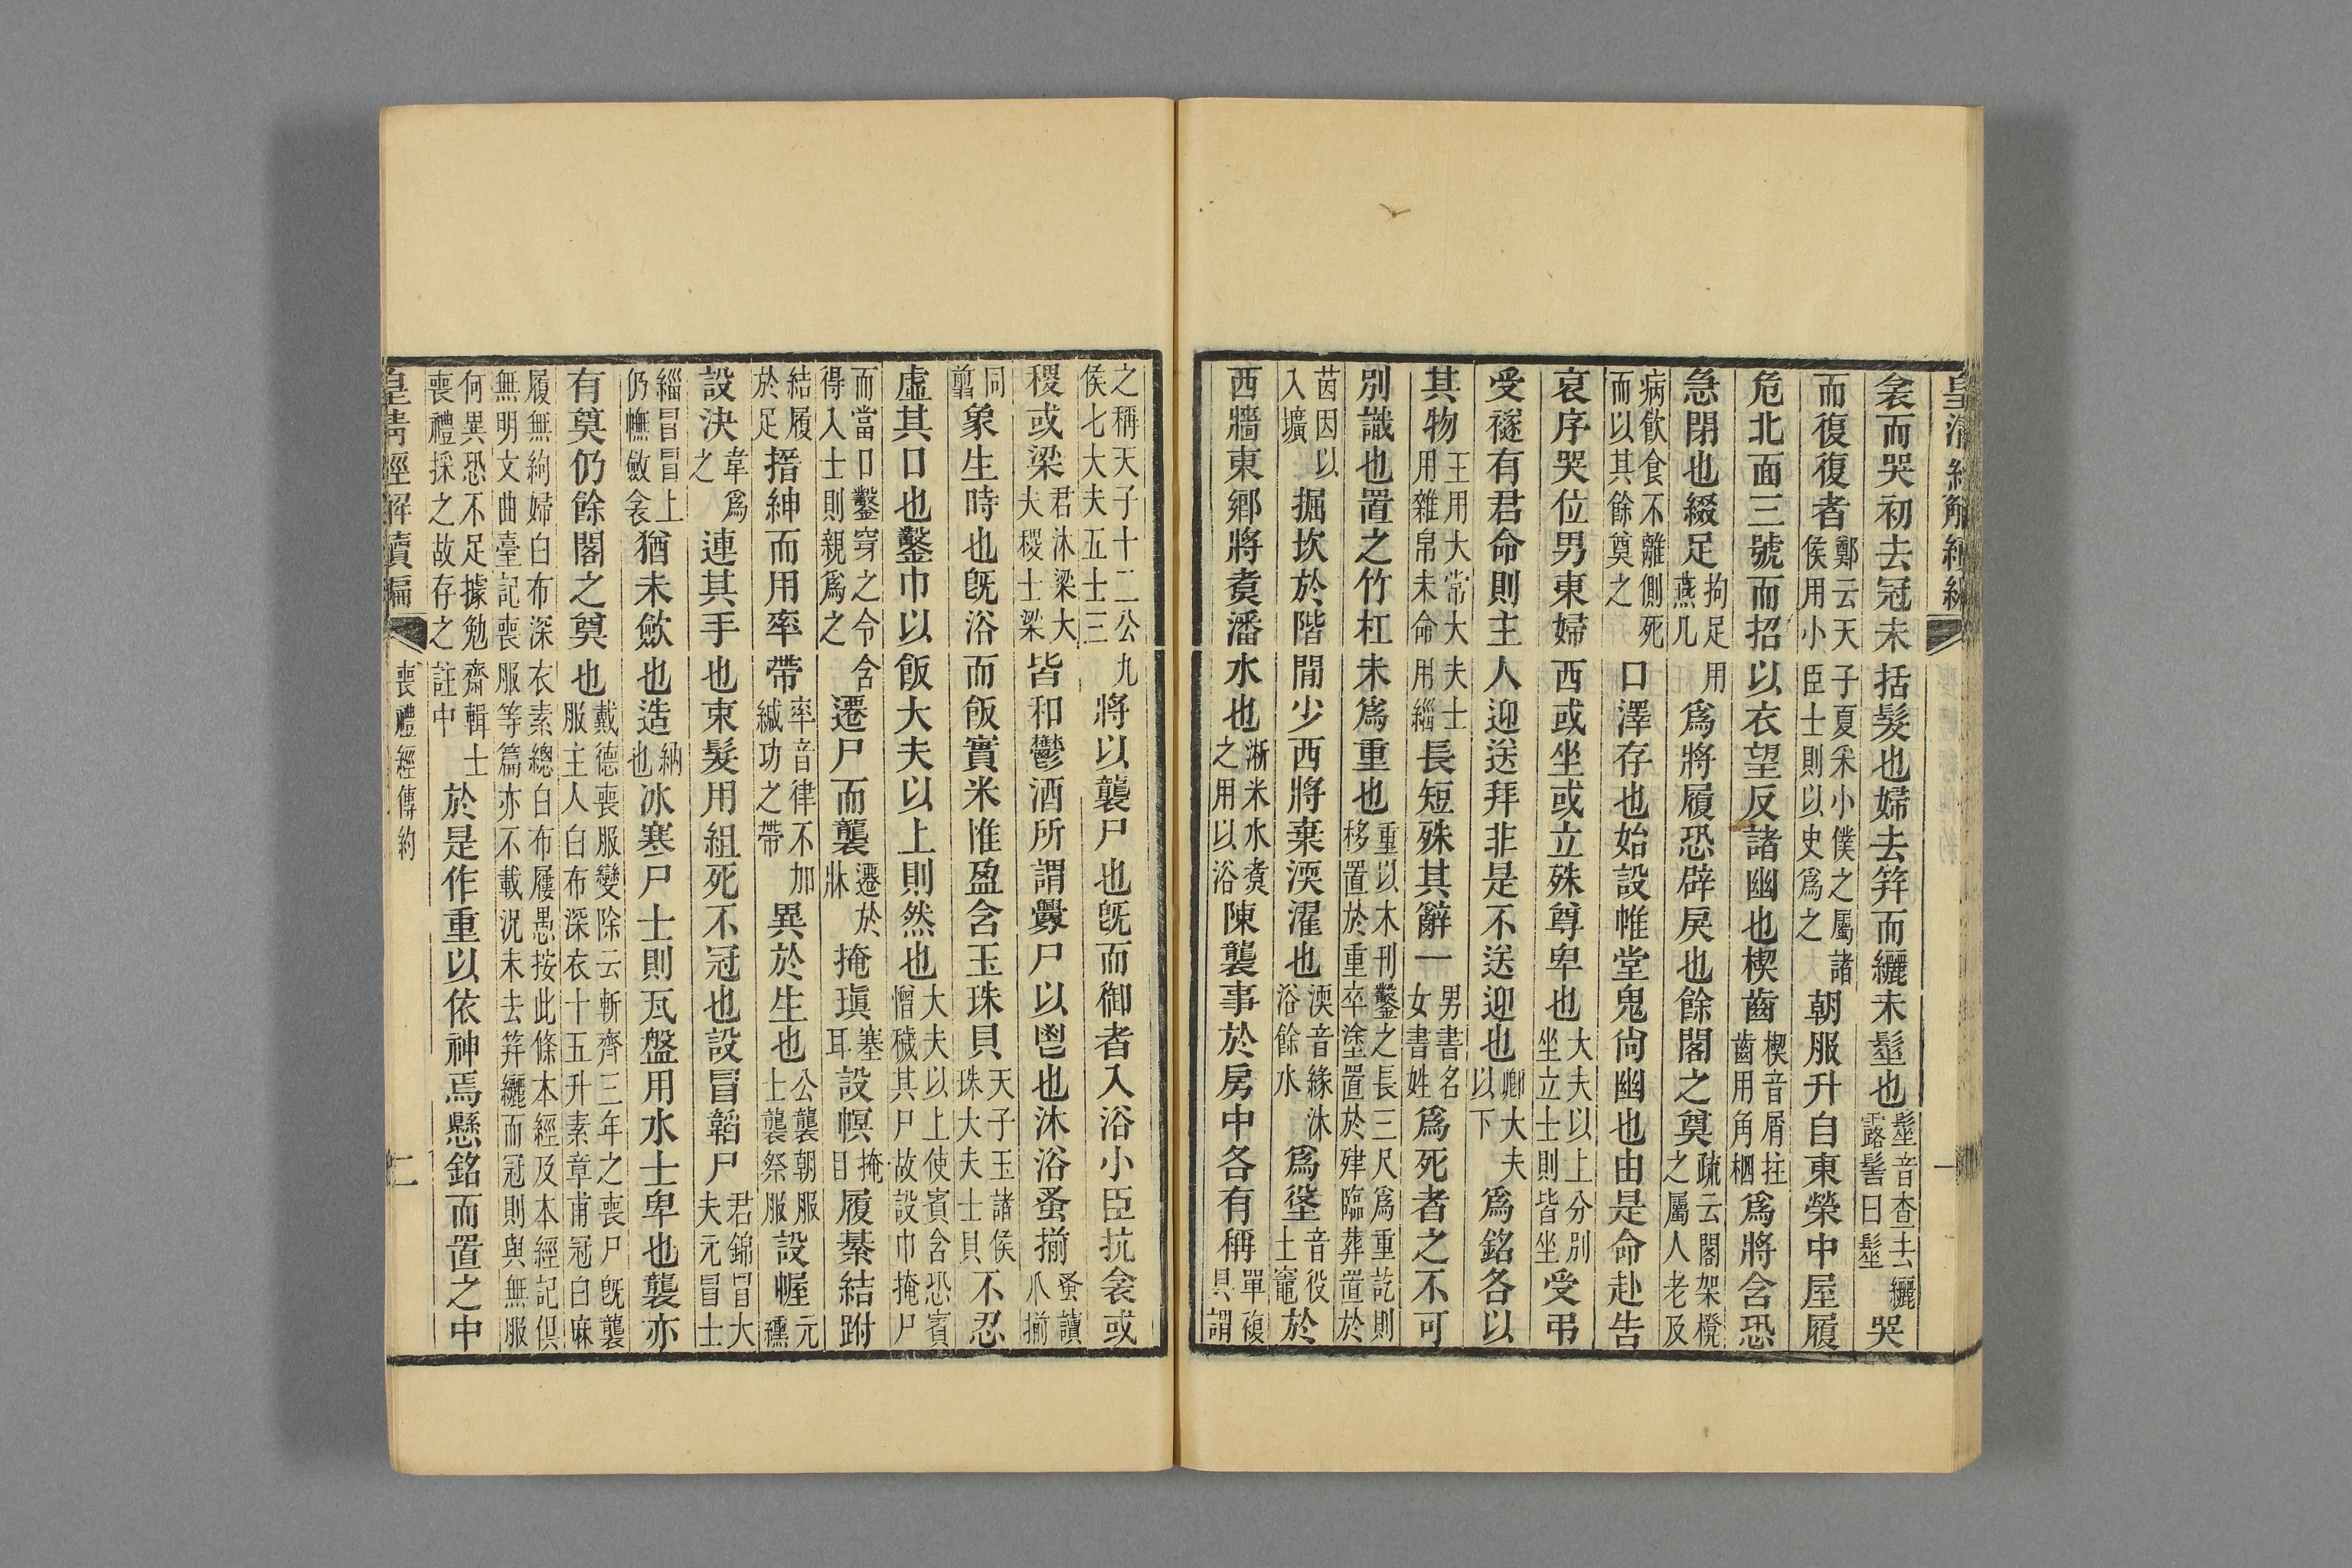 皇清經解續編 一
衾而哭初去冠未括髮也婦去笄而纚未髽也髽音查去纚露髻曰髽哭
而復復者鄭云天子夏采小僕之屬諸侯用小臣士則以史爲之朝服升自東榮中屋履
危北面三號而招以衣望反諸幽也楔齒楔音屑拄齒用角柶爲將含恐
急閉也綴足拘足用燕几爲將履恐辟戾也餘閣之奠疏云閣架櫈之屬人老及
病飲食不離側死而以其餘奠之口澤存也始設帷堂鬼尙幽也由是命赴告
哀序哭位男東婦西或坐或立殊尊卑也大夫以上分別坐立士則皆坐受弔
受襚有君命則主人迎送拜非是不送迎也卿大夫以下爲銘各以
其物王用大常大夫士用雜帛未命用緇長短殊其辭一男書名女書姓爲死者之不可
別識也置之竹杠未爲重也重以木刊鑿之長三尺爲重訖則移置於重卒塗置於肂臨葬置於
茵因以入壙掘坎於階閒少西將棄渜濯也渜音緣沐浴餘水爲垼音役土竈於
西牆東鄕將煑潘水也淅米水煑之用以浴陳襲事於房中各有稱單複具謂
之稱天子十二公九侯七大夫五士三將以襲尸也旣而御者入浴小臣抗衾或
稷或梁君沐梁大夫稷士梁皆和鬱酒所謂釁尸以鬯也沐浴蚤揃蚤讀爪揃
同翦象生時也旣浴而飯實米惟盈含玉珠貝天子玉諸侯珠大夫士貝不忍
虛其口也鑿巾以飯大夫以上則然也大夫以上使賓含恐賓憎穢其尸故設巾掩尸
而當口鑿穿之令含得入士則親爲之遷尸而襲遷於牀掩瑱塞耳設幎掩目履綦結跗
結履於足搢紳而用率帶率音律不加緘功之帶異於生也公襲朝服士襲祭服設幄元纁
設決韋爲之連其手也束髮用組死不冠也設冒韜尸君錦冒大夫元冒士
緇冒冒上仍幠斂衾猶未斂也造納也冰寒尸士則瓦盤用水士卑也襲亦
有奠仍餘閣之奠也戴德喪服變除云斬齊三年之喪尸旣襲服主人白布深衣十五升素章甫冠白麻
履無絇婦白布深衣素總白布屨愚按此條本經及本經記俱無明文曲臺記喪服等篇亦不載況未去笄纚而冠則與無服
何異恐不足據勉齋輯士喪禮採之故存之註中於是作重以依神焉懸銘而置之中
皇清經解續編 喪禮經傳約 二